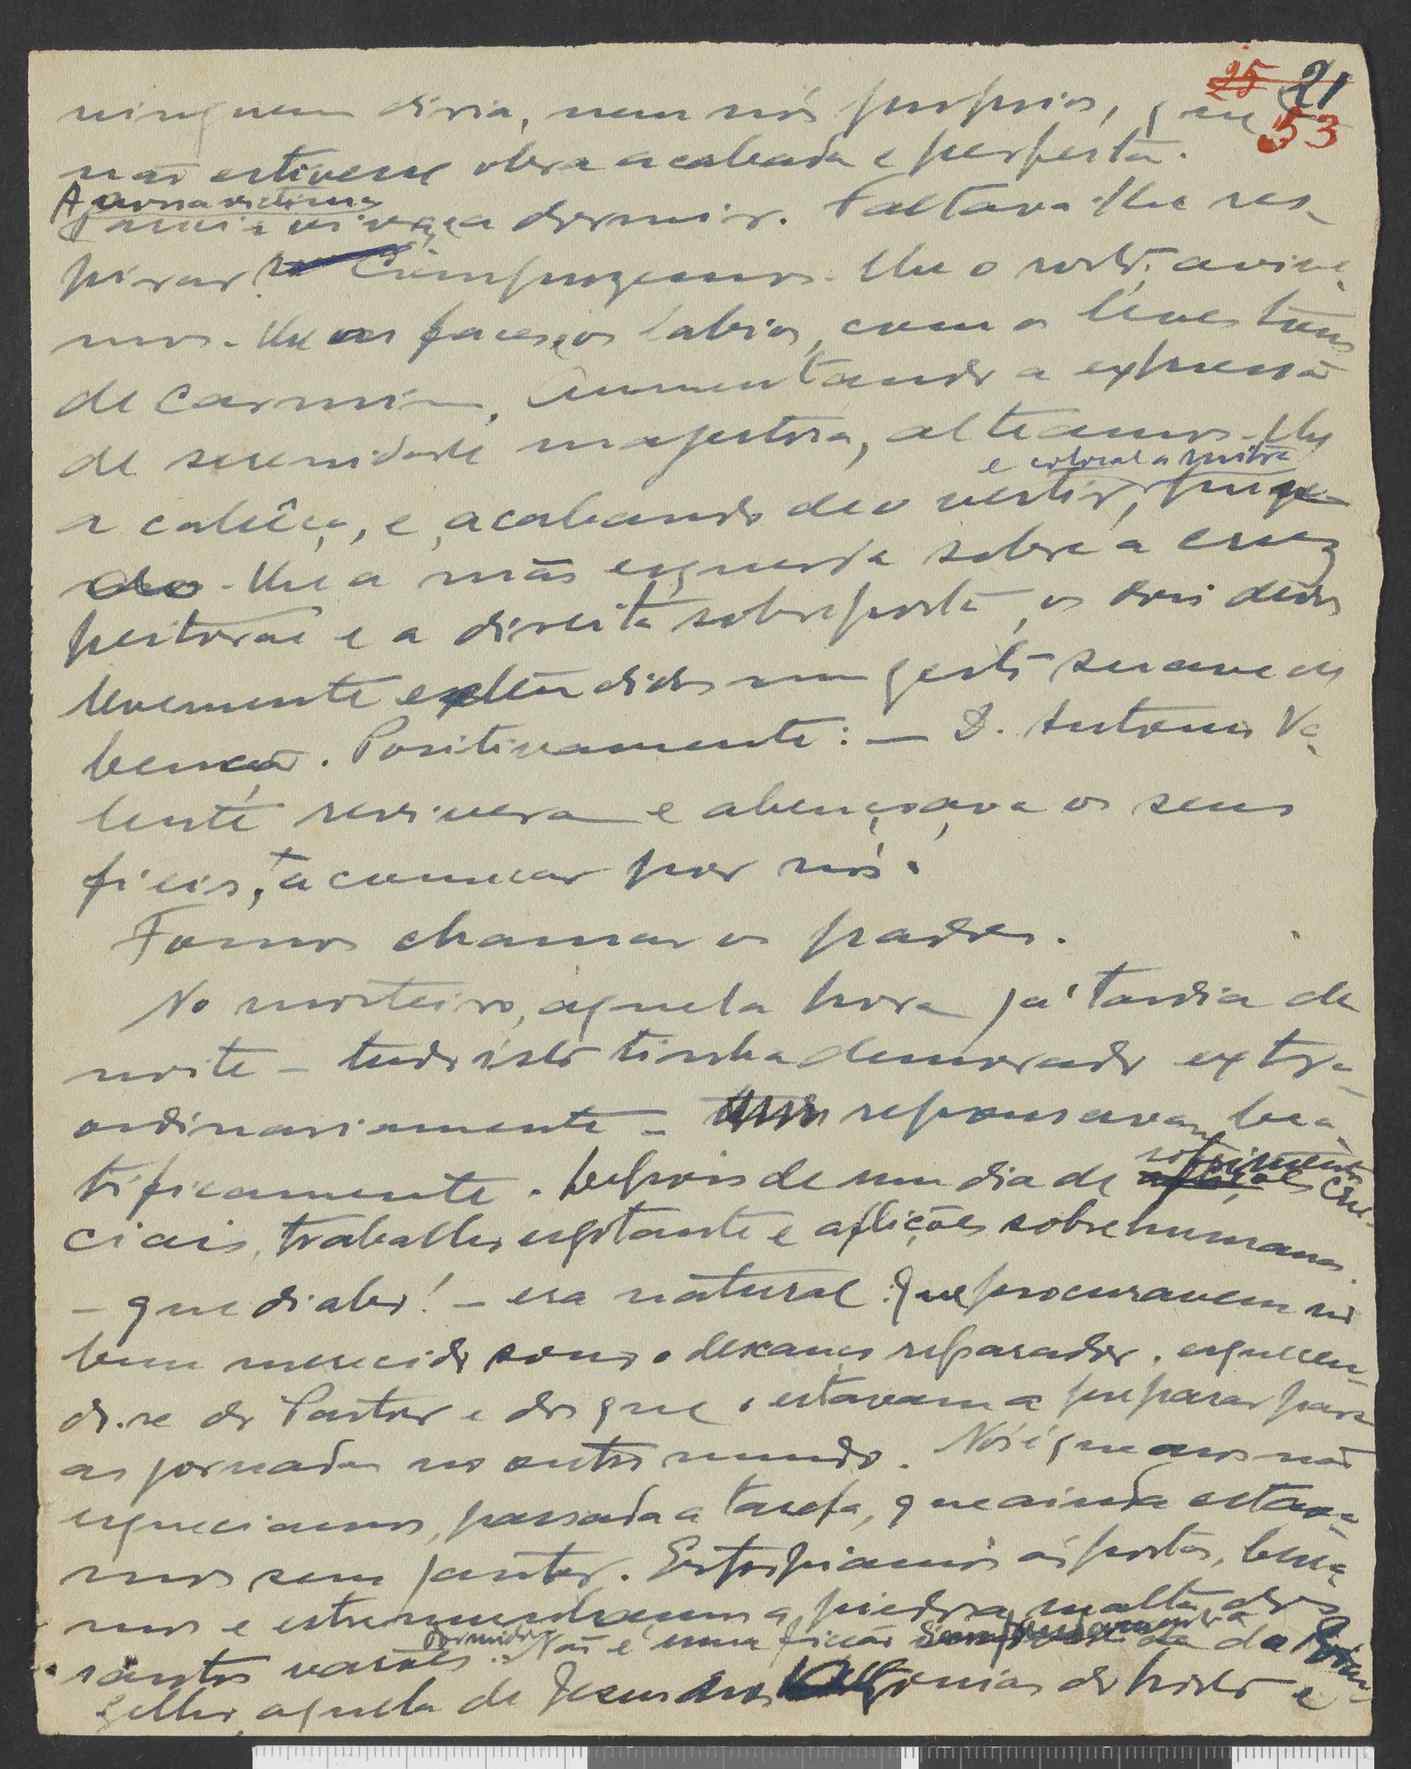 25 21
ninguem diria, nem nós proprios, que 53
não estivesse obra acabada e perfeita.
A nossa victima
Parecia a dormir. Faltava-lhe res-
pirar. Compuzemos-lhe o rosto, aviva-
mos-lhe as faces, e os labios, com os leves tons
de carmim. Aumentando a expressão
de serenidade magestosa, alteamos-lhe
e colocar a mitra
a cabêça, e, acabando de o vestir, puze
do-lhe a mão esquerda sobre a cruz
peitoral e a direita sobreposta, os dois dedos
levemente extendidos num gesto suave de
benção. Positivamente: — D. Antonio Va-
lente revivera e abençoava os seus
fieis, a começar por nós!
Fomos chamar os padres.
No mosteiro, aquela hora já tardia da
noite – tudo isto tinha demorado extra-
ordinariamente – repousavam bea-
tificamente. Depois de um dia de
sofrimentos
aflições cru-
ciais, trabalho esgotante e aflições sobrehumanas
– que diabo! – era natural que procurassem no
bem merecido sono o descanço reparador, esquecen-
do-se do Pastor e dos que o estavam a preparar para
as jornadas no outro mundo. Nós é que nos não
esqueciamos, passada a tarefa, que ainda estava-
mos sem jantar. Estropiamos ás portas, berra-
mos e estremunhamos a piedosa malta dos
dormidos
santos varões. Não é uma ficção da do Evan-
gelho, aquela de Jesus no Horto e